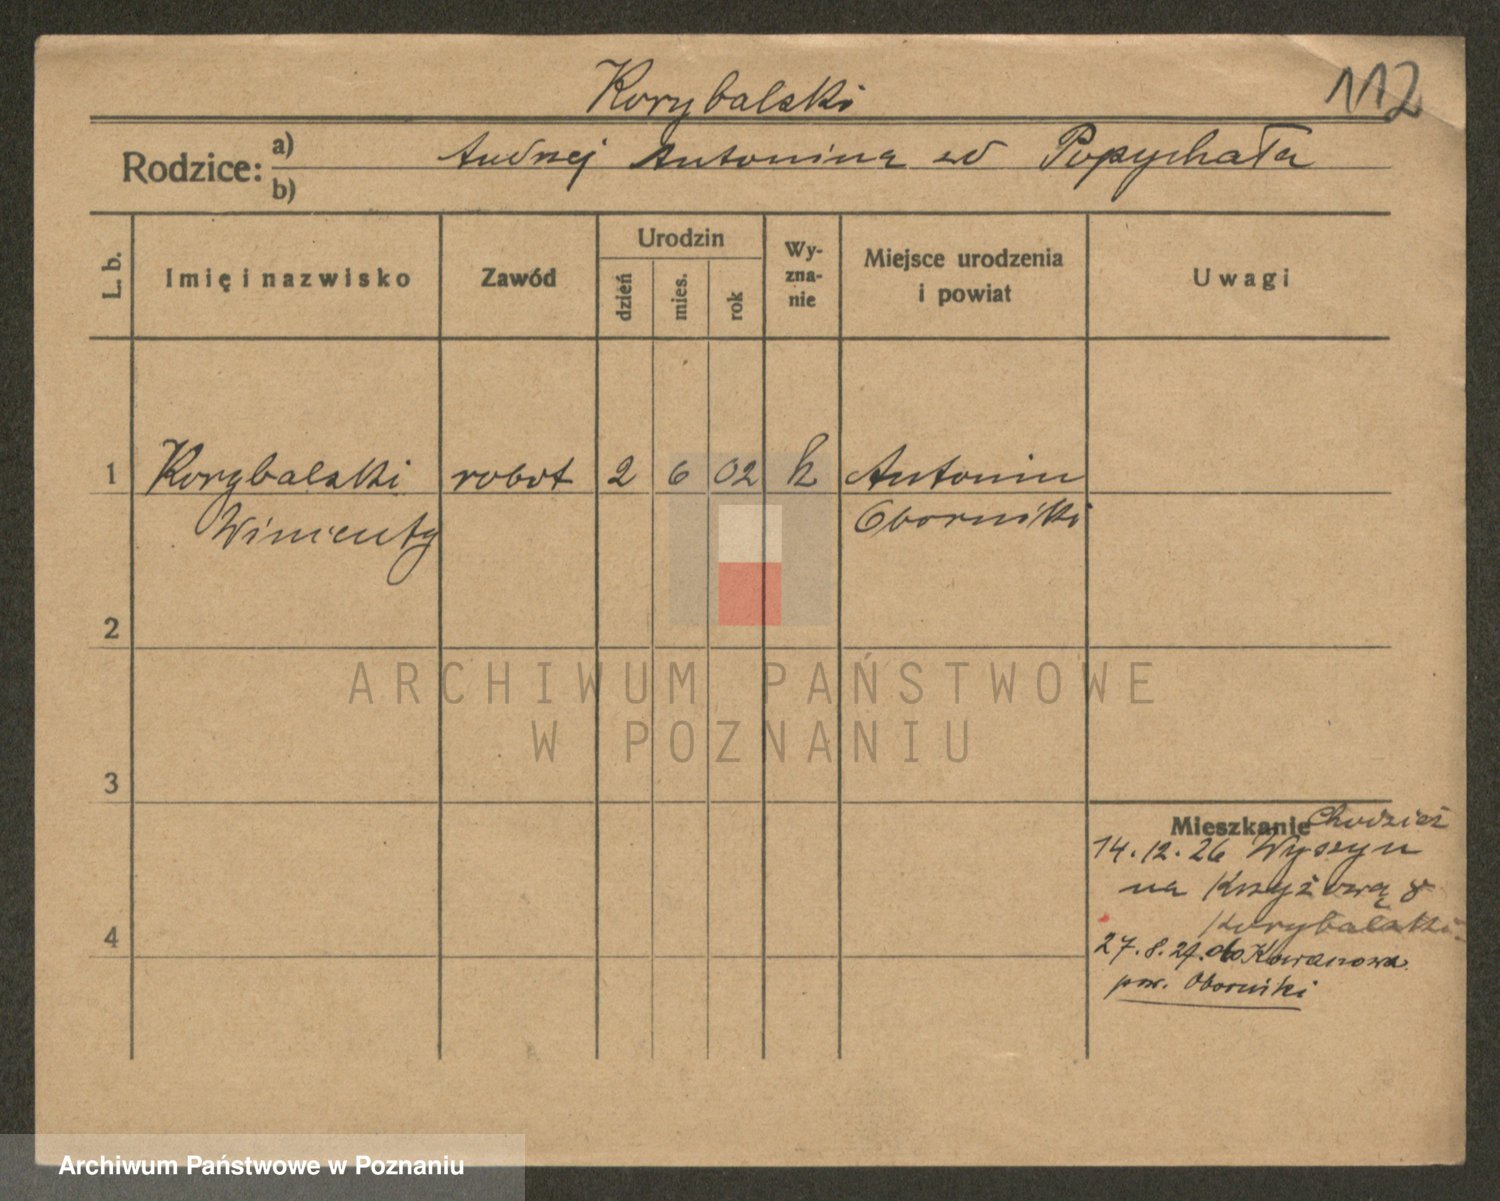 Korybalski
112
Rodzice: a) Andrzej Antonina zd Popychała
b)
L. b.
Imię i nazwisko
Zawód
Urodzin
dzień
mies.
rok
Wy-
zna-
nie
Miejsce urodzenia
i powiat
Uwagi
1 Korybalski robot 2 6 02 k Antonin
Wincenty Oborniki
2
ARCHIWUM PAŃSTWOWE
W POZNANIU
3
Mieszkanie Chodzież
14.12.26 Wyszyn
na Krzyżową 8
Korybalski
4
27.8.27. do Kowanowa
pow. Oborniki
Archiwum Państwowe w Poznaniu